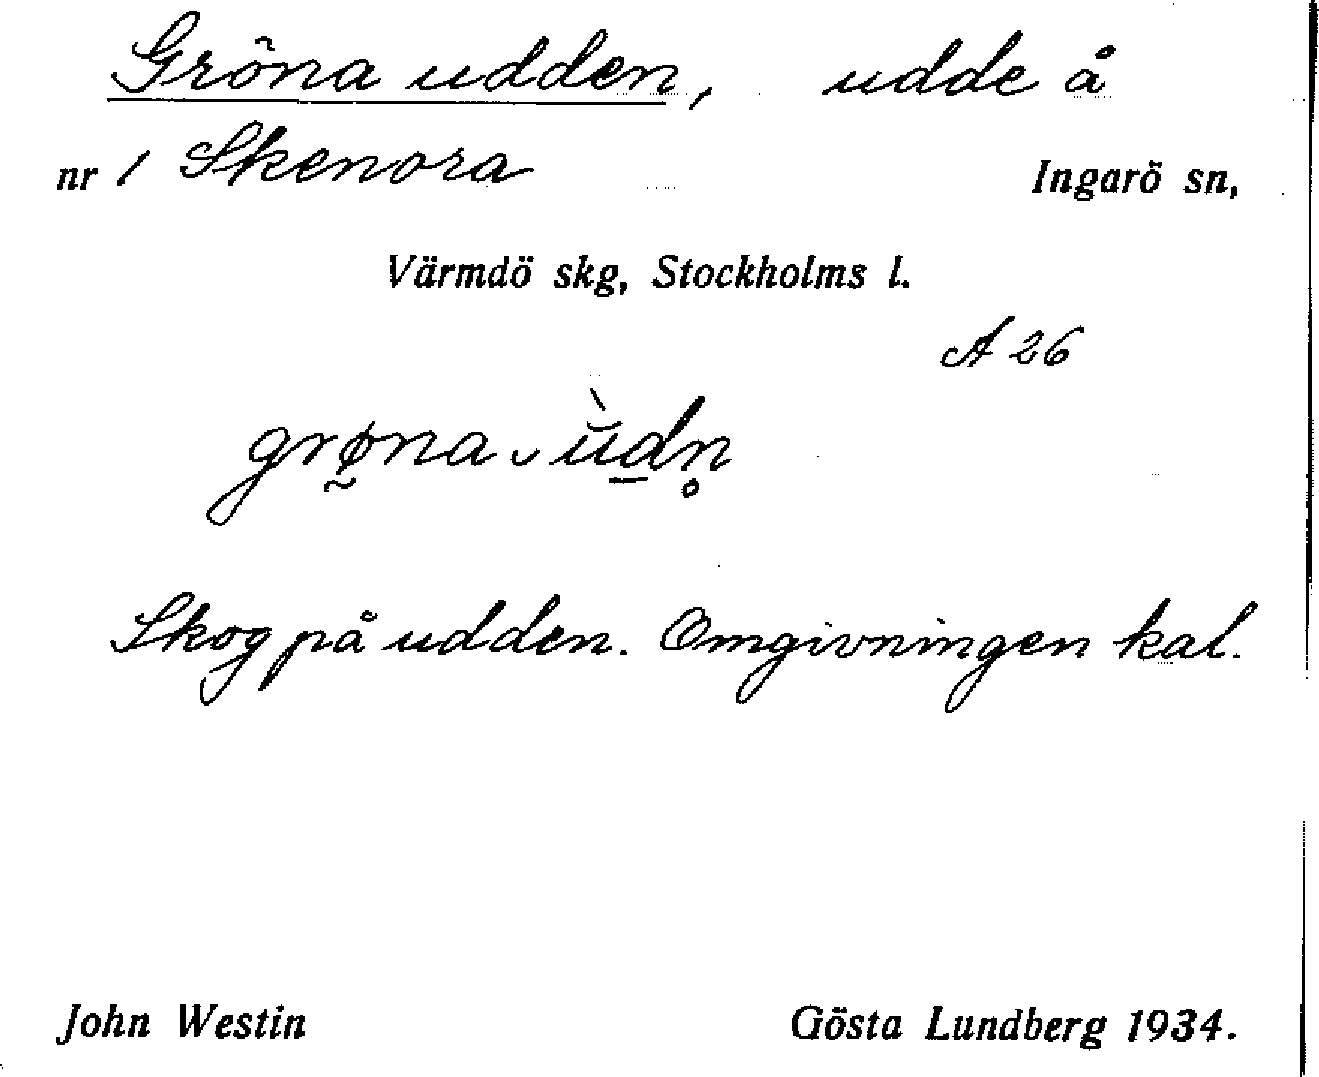 Gröna udden, udde å
nr 1 Skenora Ingarö sn,
Värmdö skg, Stockholms l.
A 26
grø̰na ᴗ ùdn̥
Skog på udden. Omgivningen kal.
John Westin Gösta Lundberg 1934.